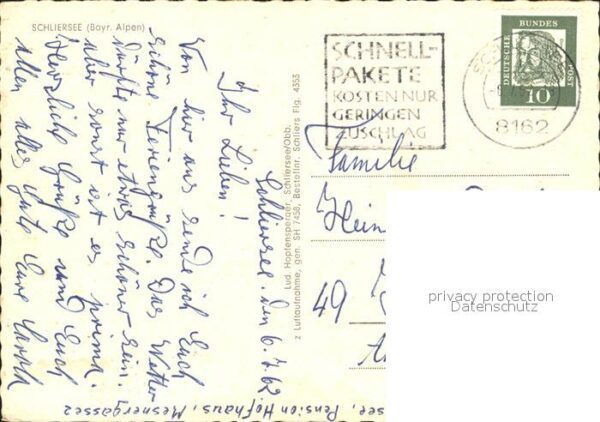 SCHLIERSEE (Bayr. Alpen)
Schliersee. den 6.7.62
Ihr Lieben!
Von hier aus sende ich Euch
schöne Feriengrüße. Das Wetter
dürfte nur etwas schöner sein.
aber sonst ist es prima.
Herzliche Grüße und Euch
allen alles Gute Eure
see, Pension Hofhaus, Mesnergasse 2
Lud. Hopfensperger, Schliersee/Obb.
z Luftaufnahme, gen. SH 7458, Bestellnr. Schliers Flg. 4353
SCHNELL-
PAKETE
KOSTEN NUR
GERINGEN
ZUSCHLAG
8162
DEUTSCHE BUNDESPOST
10
Familie
Hein
49
privacy protection
Datenschutz